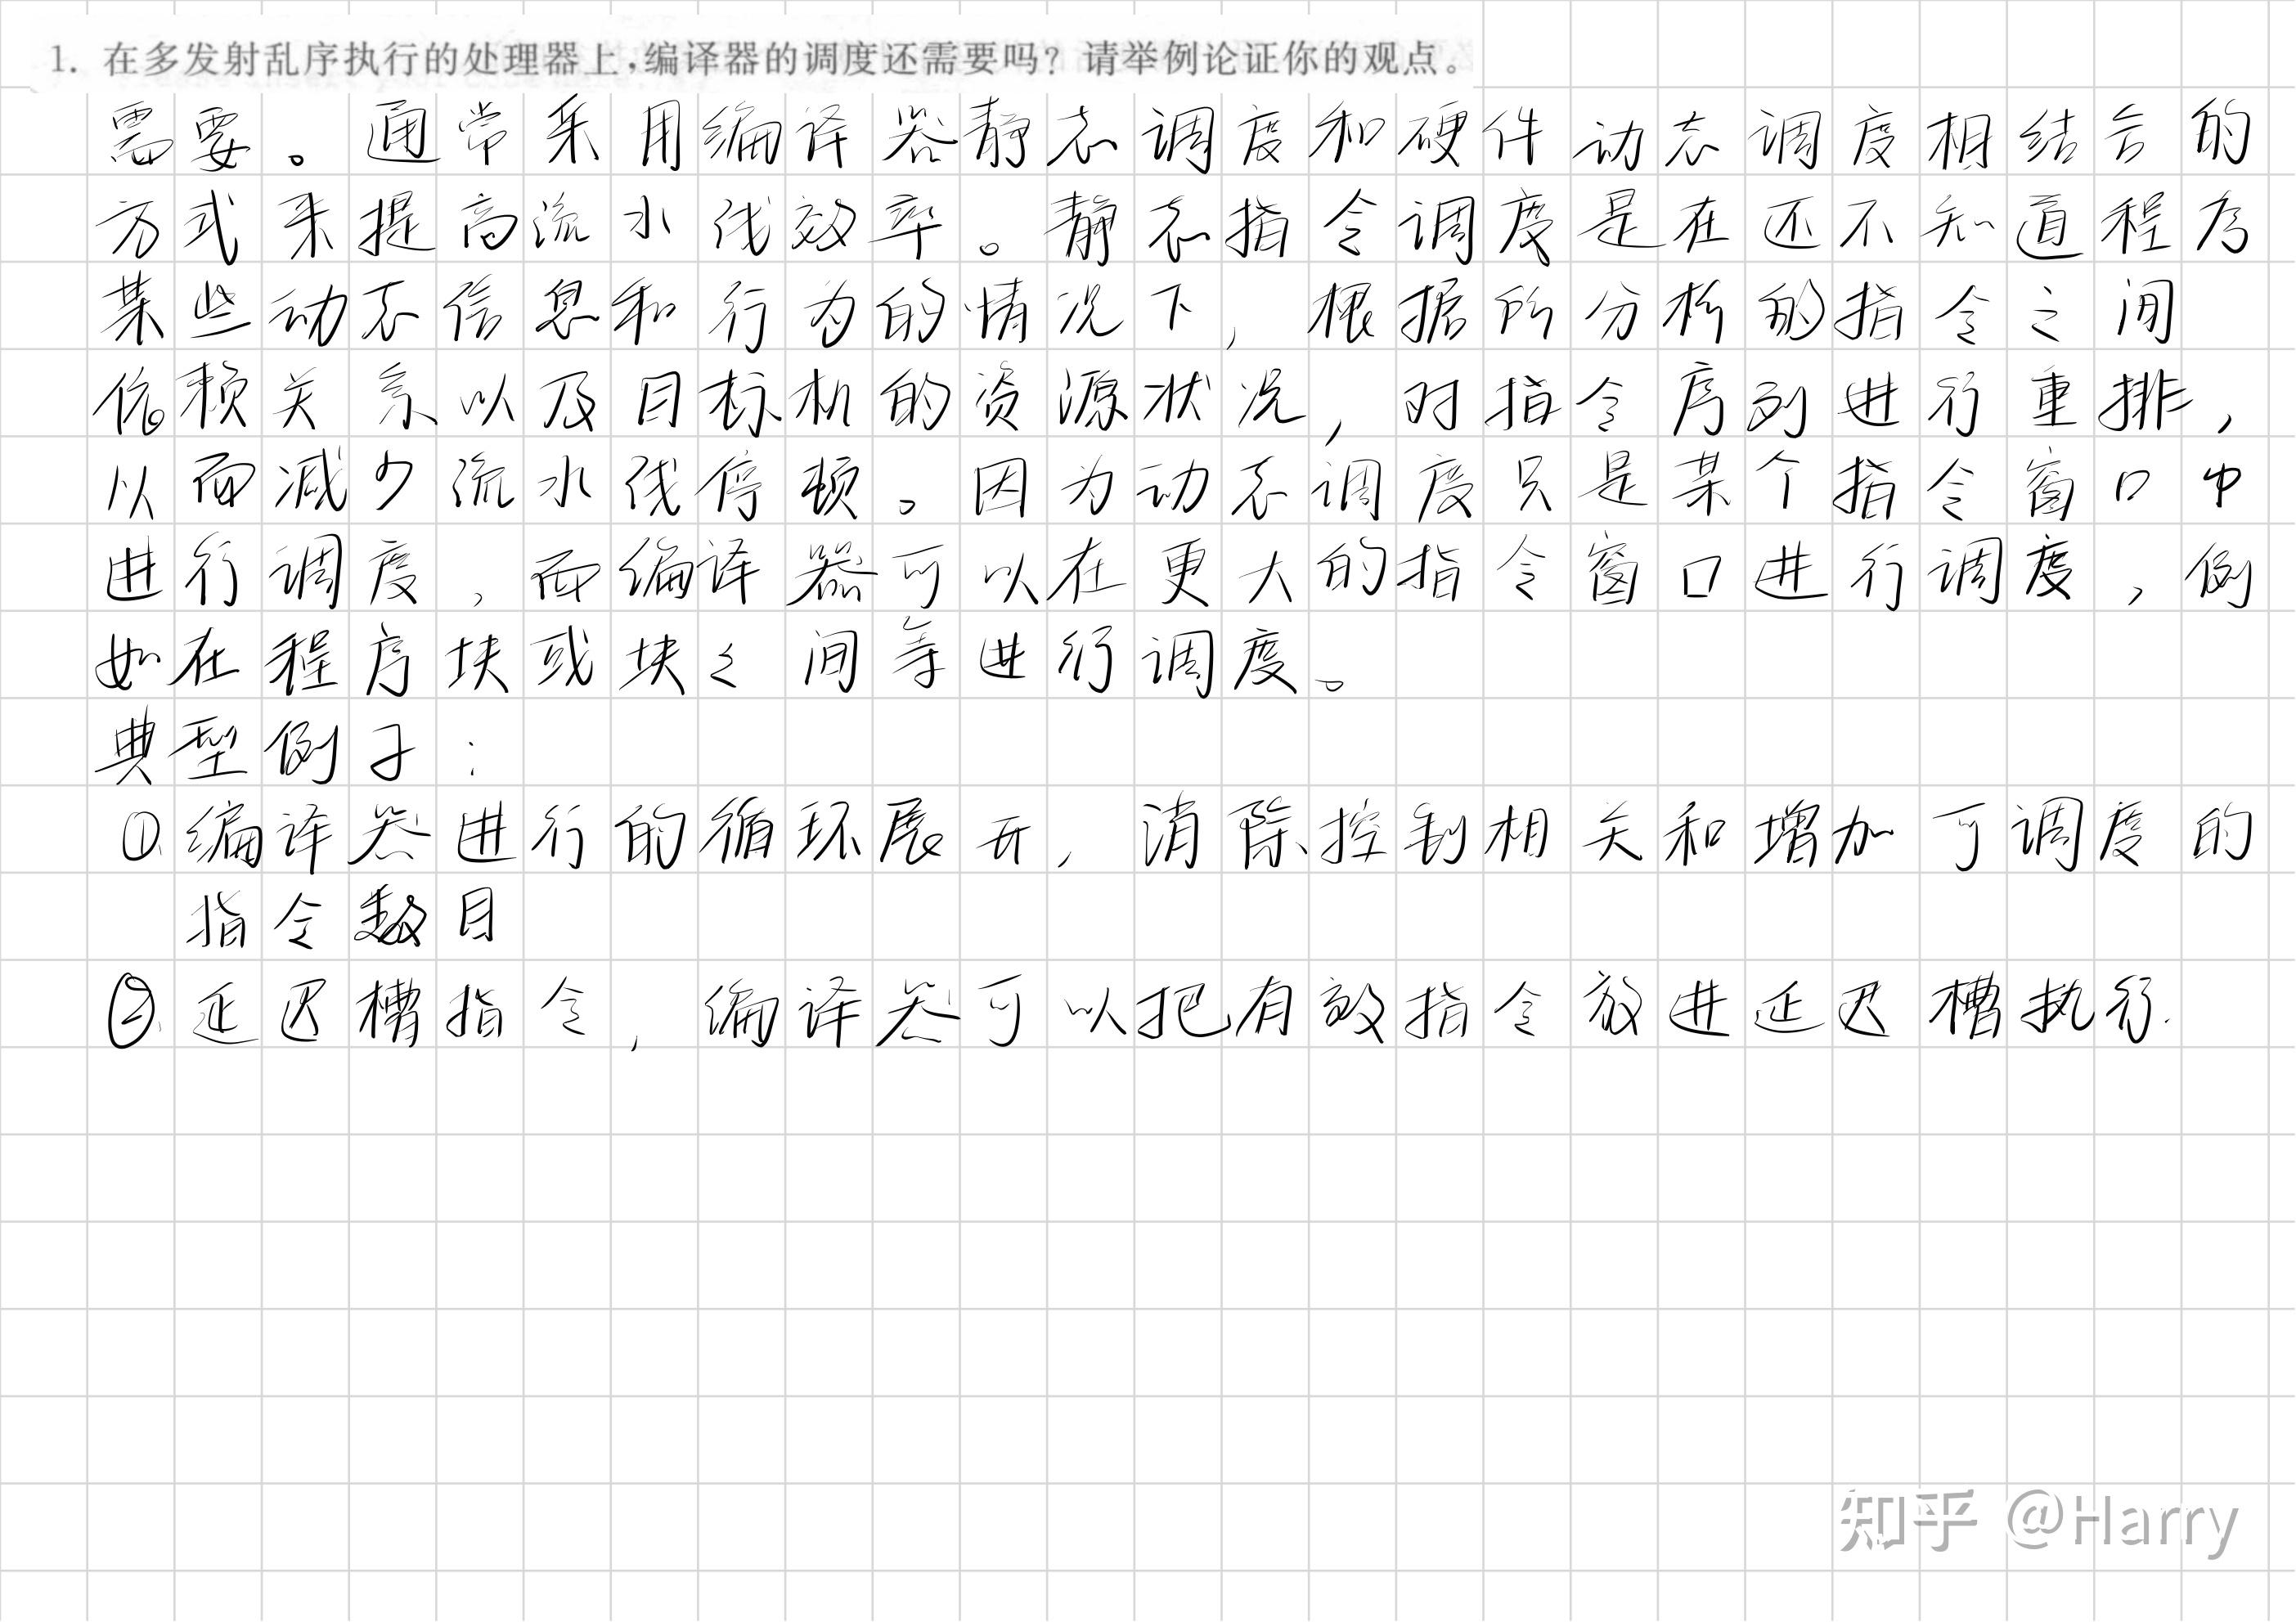 1. 在多发射乱序执行的处理器上,编译器的调度还需要吗? 请举例论证你的观点。
需要。通常采用编译器静态调度和硬件动态调度相结合的
方式来提高流水线效率。静态指令调度是在还不知道程序
某些动态信息和行为的情况下,根据所分析的指令之间
依赖关系以及目标机的资源状况,对指令序列进行重排,
从而减少流水线停顿。因为动态调度只是某个指令窗口中
进行调度,而编译器可以在更大的指令窗口进行调度,例
如在程序块或块之间等进行调度。
典型例子:
①.编译器进行的循环展开,消除控制相关和增加可调度的
指令数目
②.延迟槽指令,编译器可以把有效指令放进延迟槽执行.
知乎 @Harry